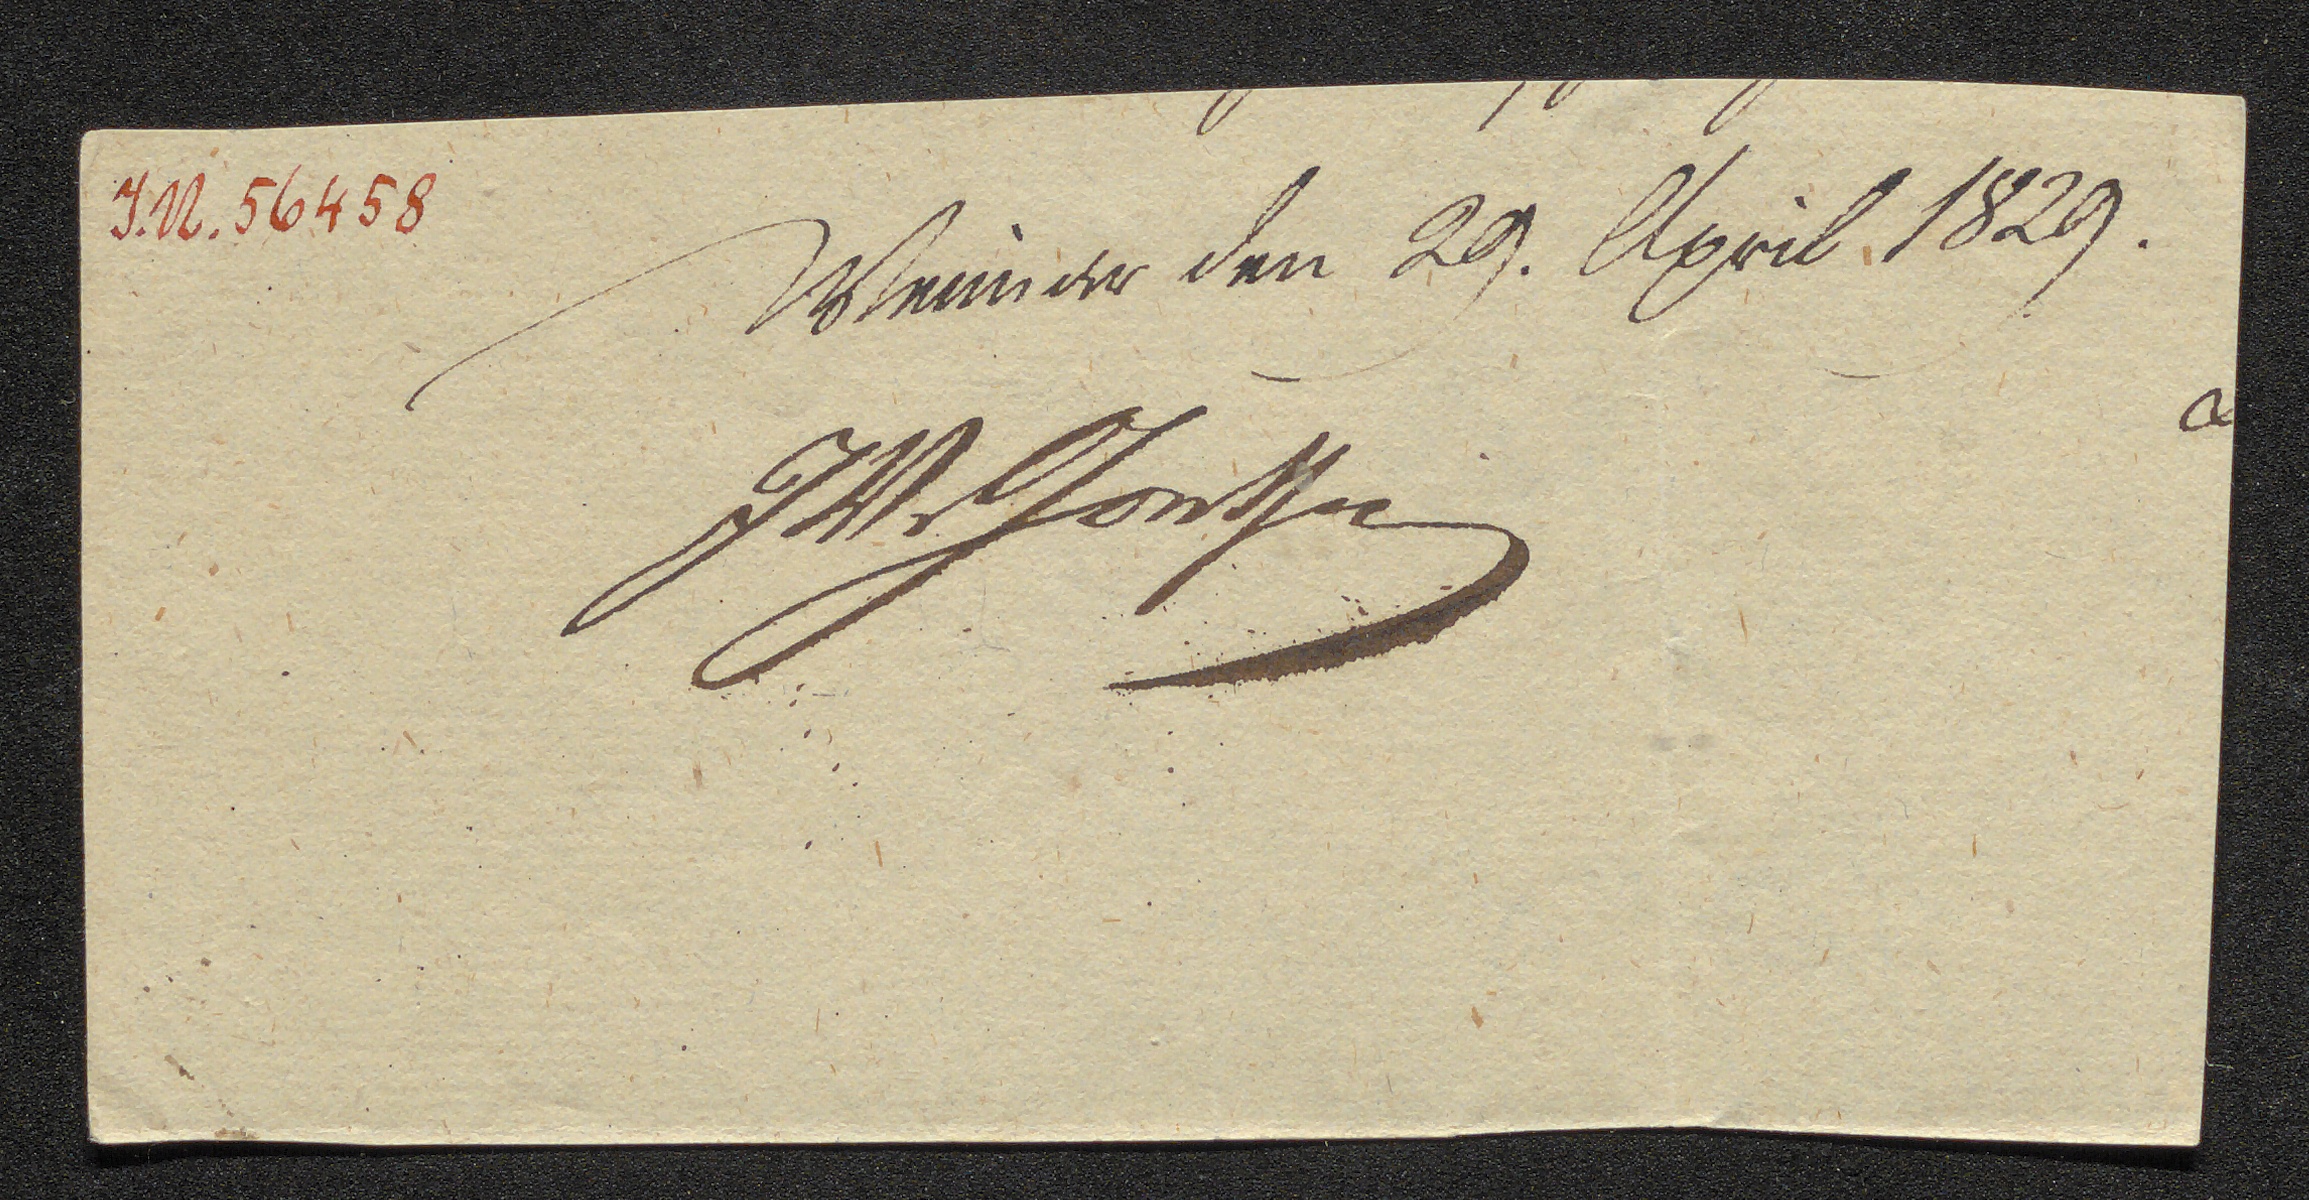 I.N. 56458
Weimar den 29. April 1829.
JWvGoethe